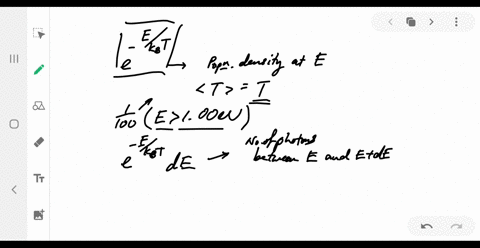 e^{-E/k_BT} → Popn. density at E
<T> = T
1/100 (E > 1.00eV)
e^{-E/k_BT} dE → No of photons
between E and E+dE
Tт